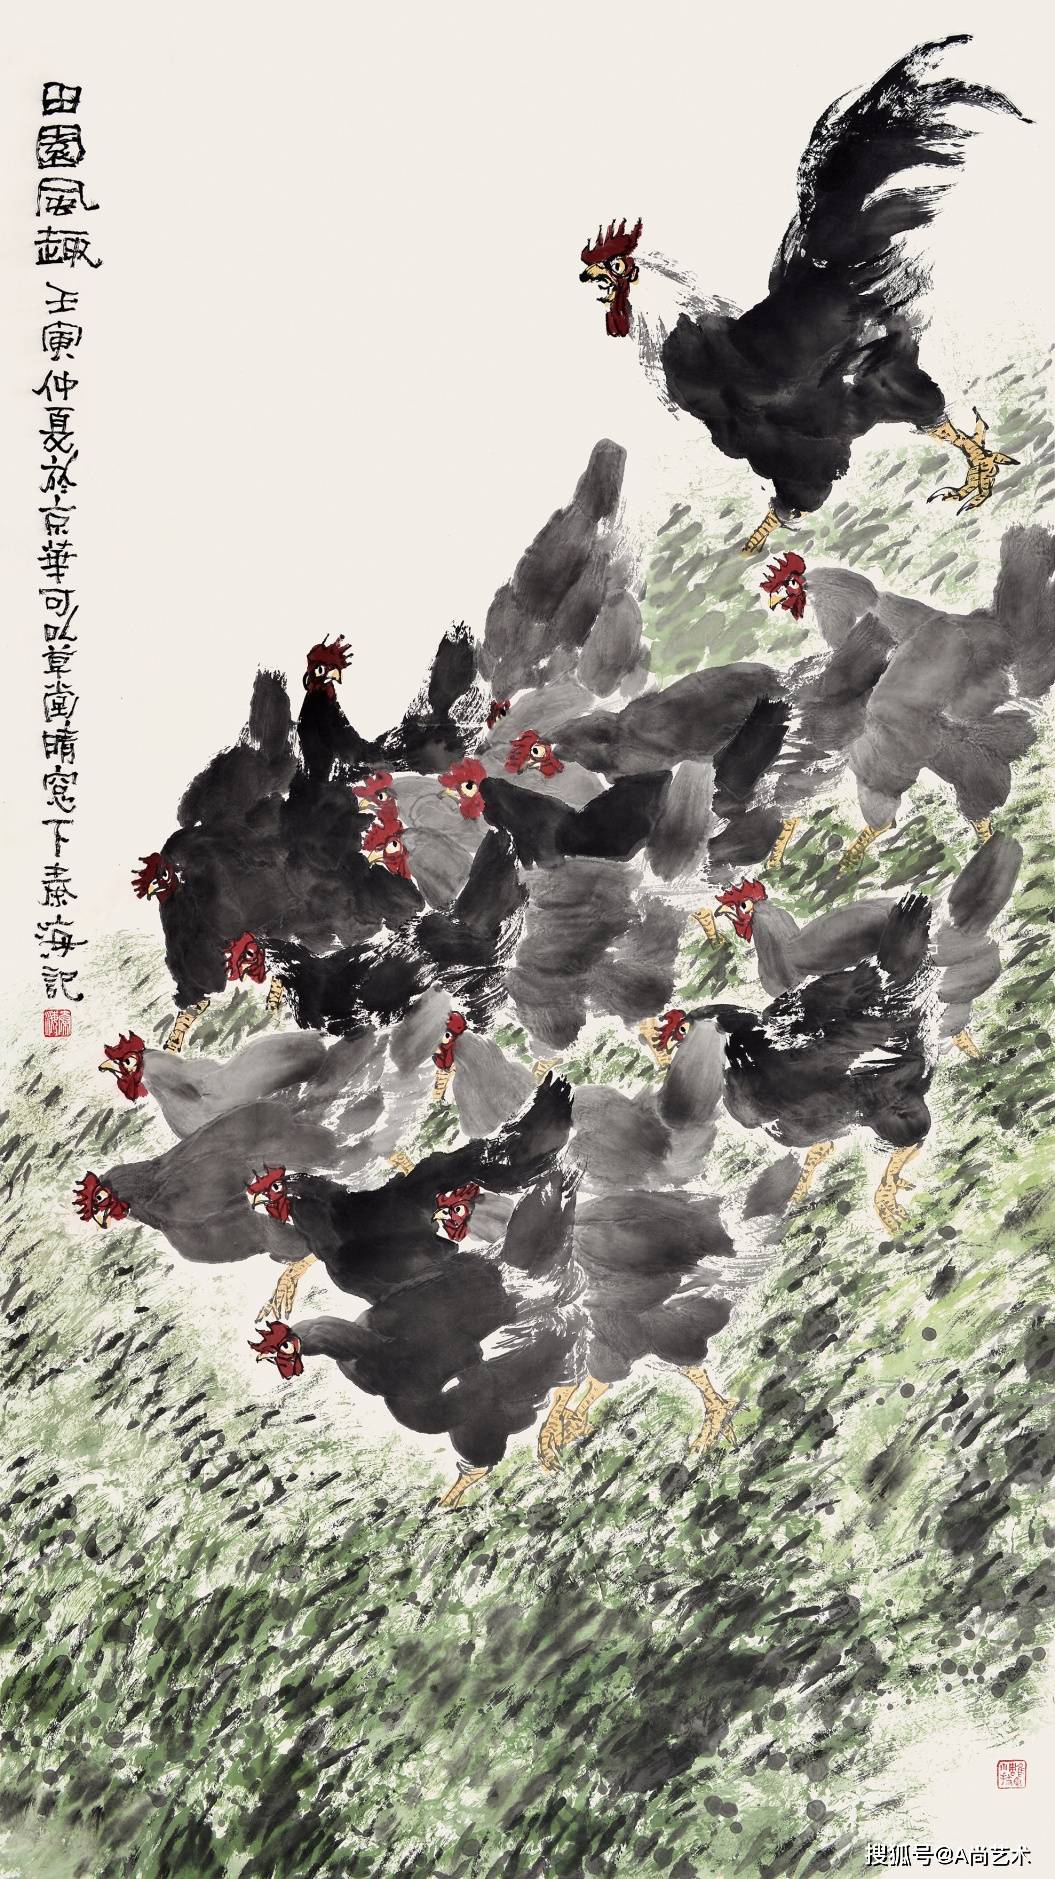 田園風趣 壬寅仲夏於京華可以草堂晴窓下秦海記
搜狐号@A尚艺术